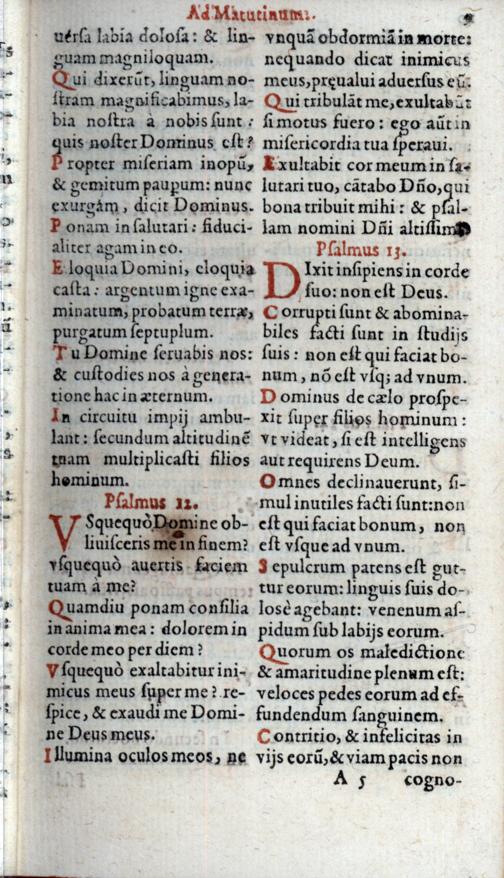 Ad Matutinum.
uersa labia dolosa: & lin-
guam magniloquam.
Qui dixerũt, linguam no-
stram magnificabimus, la-
bia nostra à nobis sunt:
quis noster Dominus est?
Propter miseriam inopũ,
& gemitum pauperum: nunc
exurgam, dicit Dominus.
Ponam in salutari: fiduci-
aliter agam in eo.
Eloquia Domini, eloquia
casta: argentum igne exa-
minatum, probatum terræ,
purgatum septuplum.
Tu Domine seruabis nos:
& custodies nos à genera-
tione hac in æternum.
In circuitu impij ambu-
lant: secundum altitudinẽ
tuam multiplicasti filios
hominum.
Psalmus 12.
VSquequò Domine ob-
liuisceris me in finem?
vsquequò auertis faciem
tuam à me?
Quamdiu ponam consilia
in anima mea: dolorem in
corde meo per diem?
Vsquequò exaltabitur ini-
micus meus super me? re-
spice, & exaudi me Domi-
ne Deus meus.
Illumina oculos meos, ne
vnquã obdormiã in morte:
nequando dicat inimicus
meus, pręualui aduersus eũ.
Qui tribulãt me, exultabũt
si motus fuero: ego aũt in
misericordia tua speraui.
Exultabit cor meum in sa-
lutari tuo, cãtabo Dño, qui
bona tribuit mihi: & psal-
lam nomini Dñi altissimo
Psalmus 13.
DIxit insipiens in corde
suo: non est Deus.
Corrupti sunt & abomina-
biles facti sunt in studijs
suis: non est qui faciat bo-
num, nõ est vsq; ad vnum.
Dominus de cælo prospe-
xit super filios hominum:
vt videat, si est intelligens
aut requirens Deum.
Omnes declinauerunt, si-
mul inutiles facti sunt: non
est qui faciat bonum, non
est vsque ad vnum.
Sepulcrum patens est gut-
tur eorum: linguis suis do-
losè agebant: venenum as-
pidum sub labijs eorum.
Quorum os maledictione
& amaritudine plenum est:
veloces pedes eorum ad ef-
fundendum sanguinem.
Contritio, & infelicitas in
vijs eorũ, & viam pacis non
A 5 cogno-